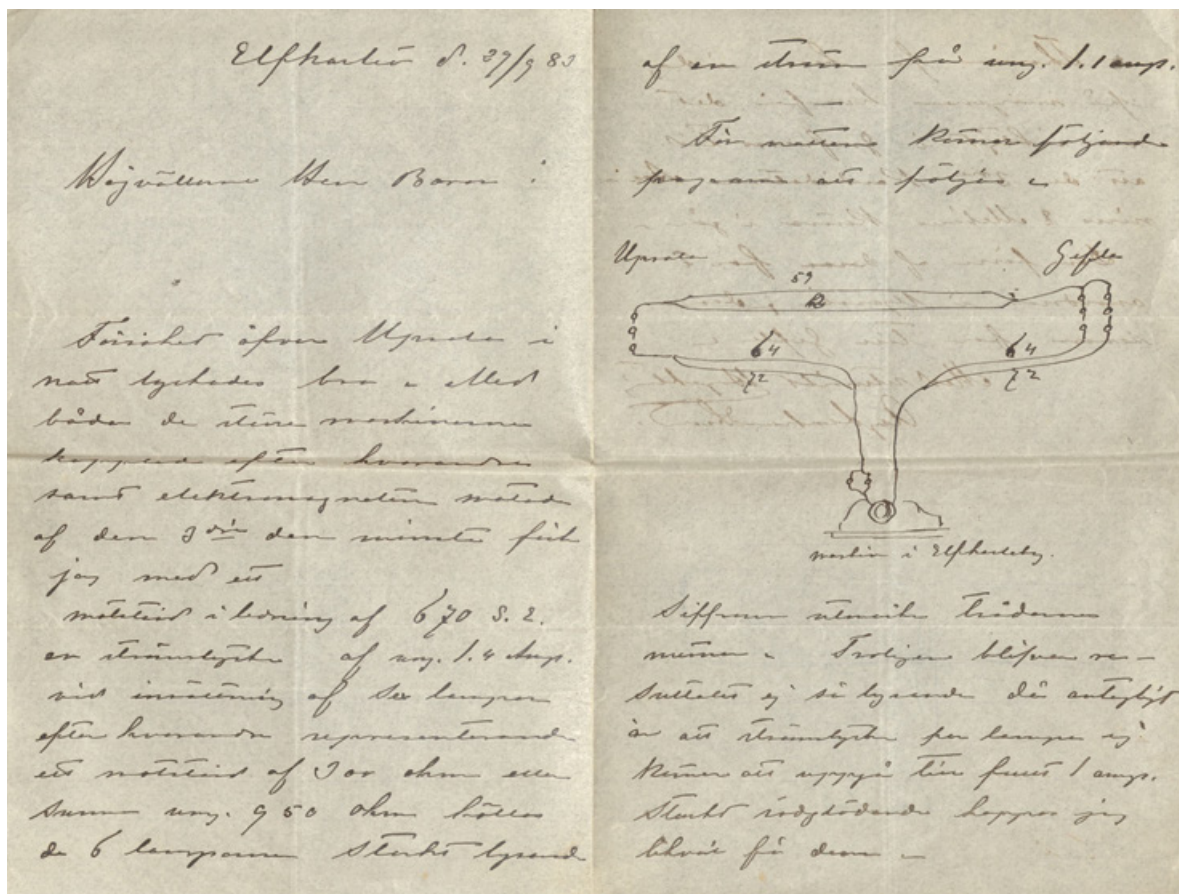 Elfkarleö d. 27/9 83
Högvälborne Herr Baron!
Försöket öfver Upsala i
natt lyckades bra. Med
båda de större maskinerna
kopplade efter hvarandra
samt elektromagneten matade
af den 3die den minsta fick
jag med ett
motstånd i ledning af 670 S. E.
en strömstyrka af ung. 1.4 Amp.
vid insättning af sex lampor
efter hvarandra representerande
ett motstånd af 300 ohm eller
summa ung. 950 ohm höllos
de 6 lamporna starkt lysande
af en ström på ung. 1.1 amp.
För natten kommer följande
program att följas.
Upsala
Gefle
59
64
72
64
72
maskin i Elfkarleby.
Siffrorna utmärka trådarnes
nummer. Troligen blifver re-
sultatet ej så lysande då
är att strömstyrkan per lampa ej
kommer att uppgå till fullt 1 amp.
Starkt rödglödande hoppas jag
likväl få dem.